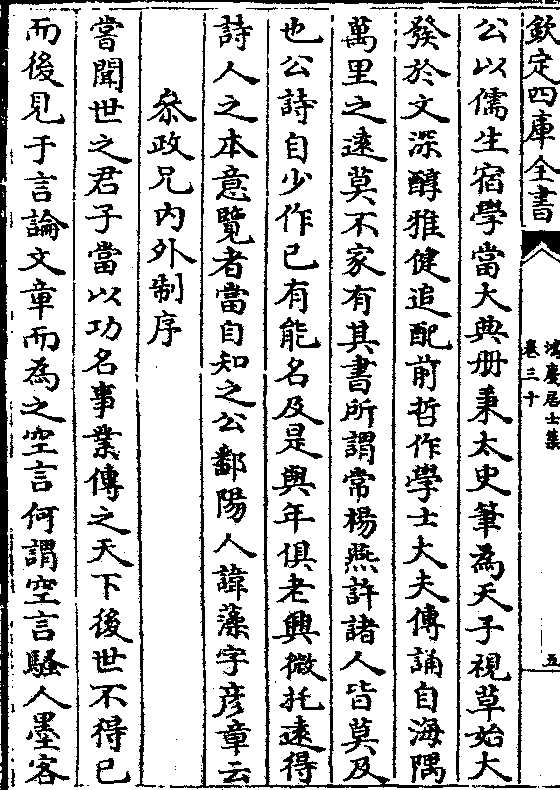 欽定四庫全書
鴻慶居士集
卷三十
五
公以儒生宿學當大典册秉太史筆為天子視草始大
發於文深醇雅健追配前哲作學士大夫傳誦自海隅
萬里之遠莫不家有其書所謂常楊燕許諸人皆莫及
也公詩自少作已有能名及是與年俱老興微托遠得
詩人之本意覽者當自知之公鄱陽人諱藻字彦章云
叅政兄内外制序
嘗聞世之君子當以功名事業傳之天下後世不得已
而後見于言論文章而為之空言何謂空言騷人墨客